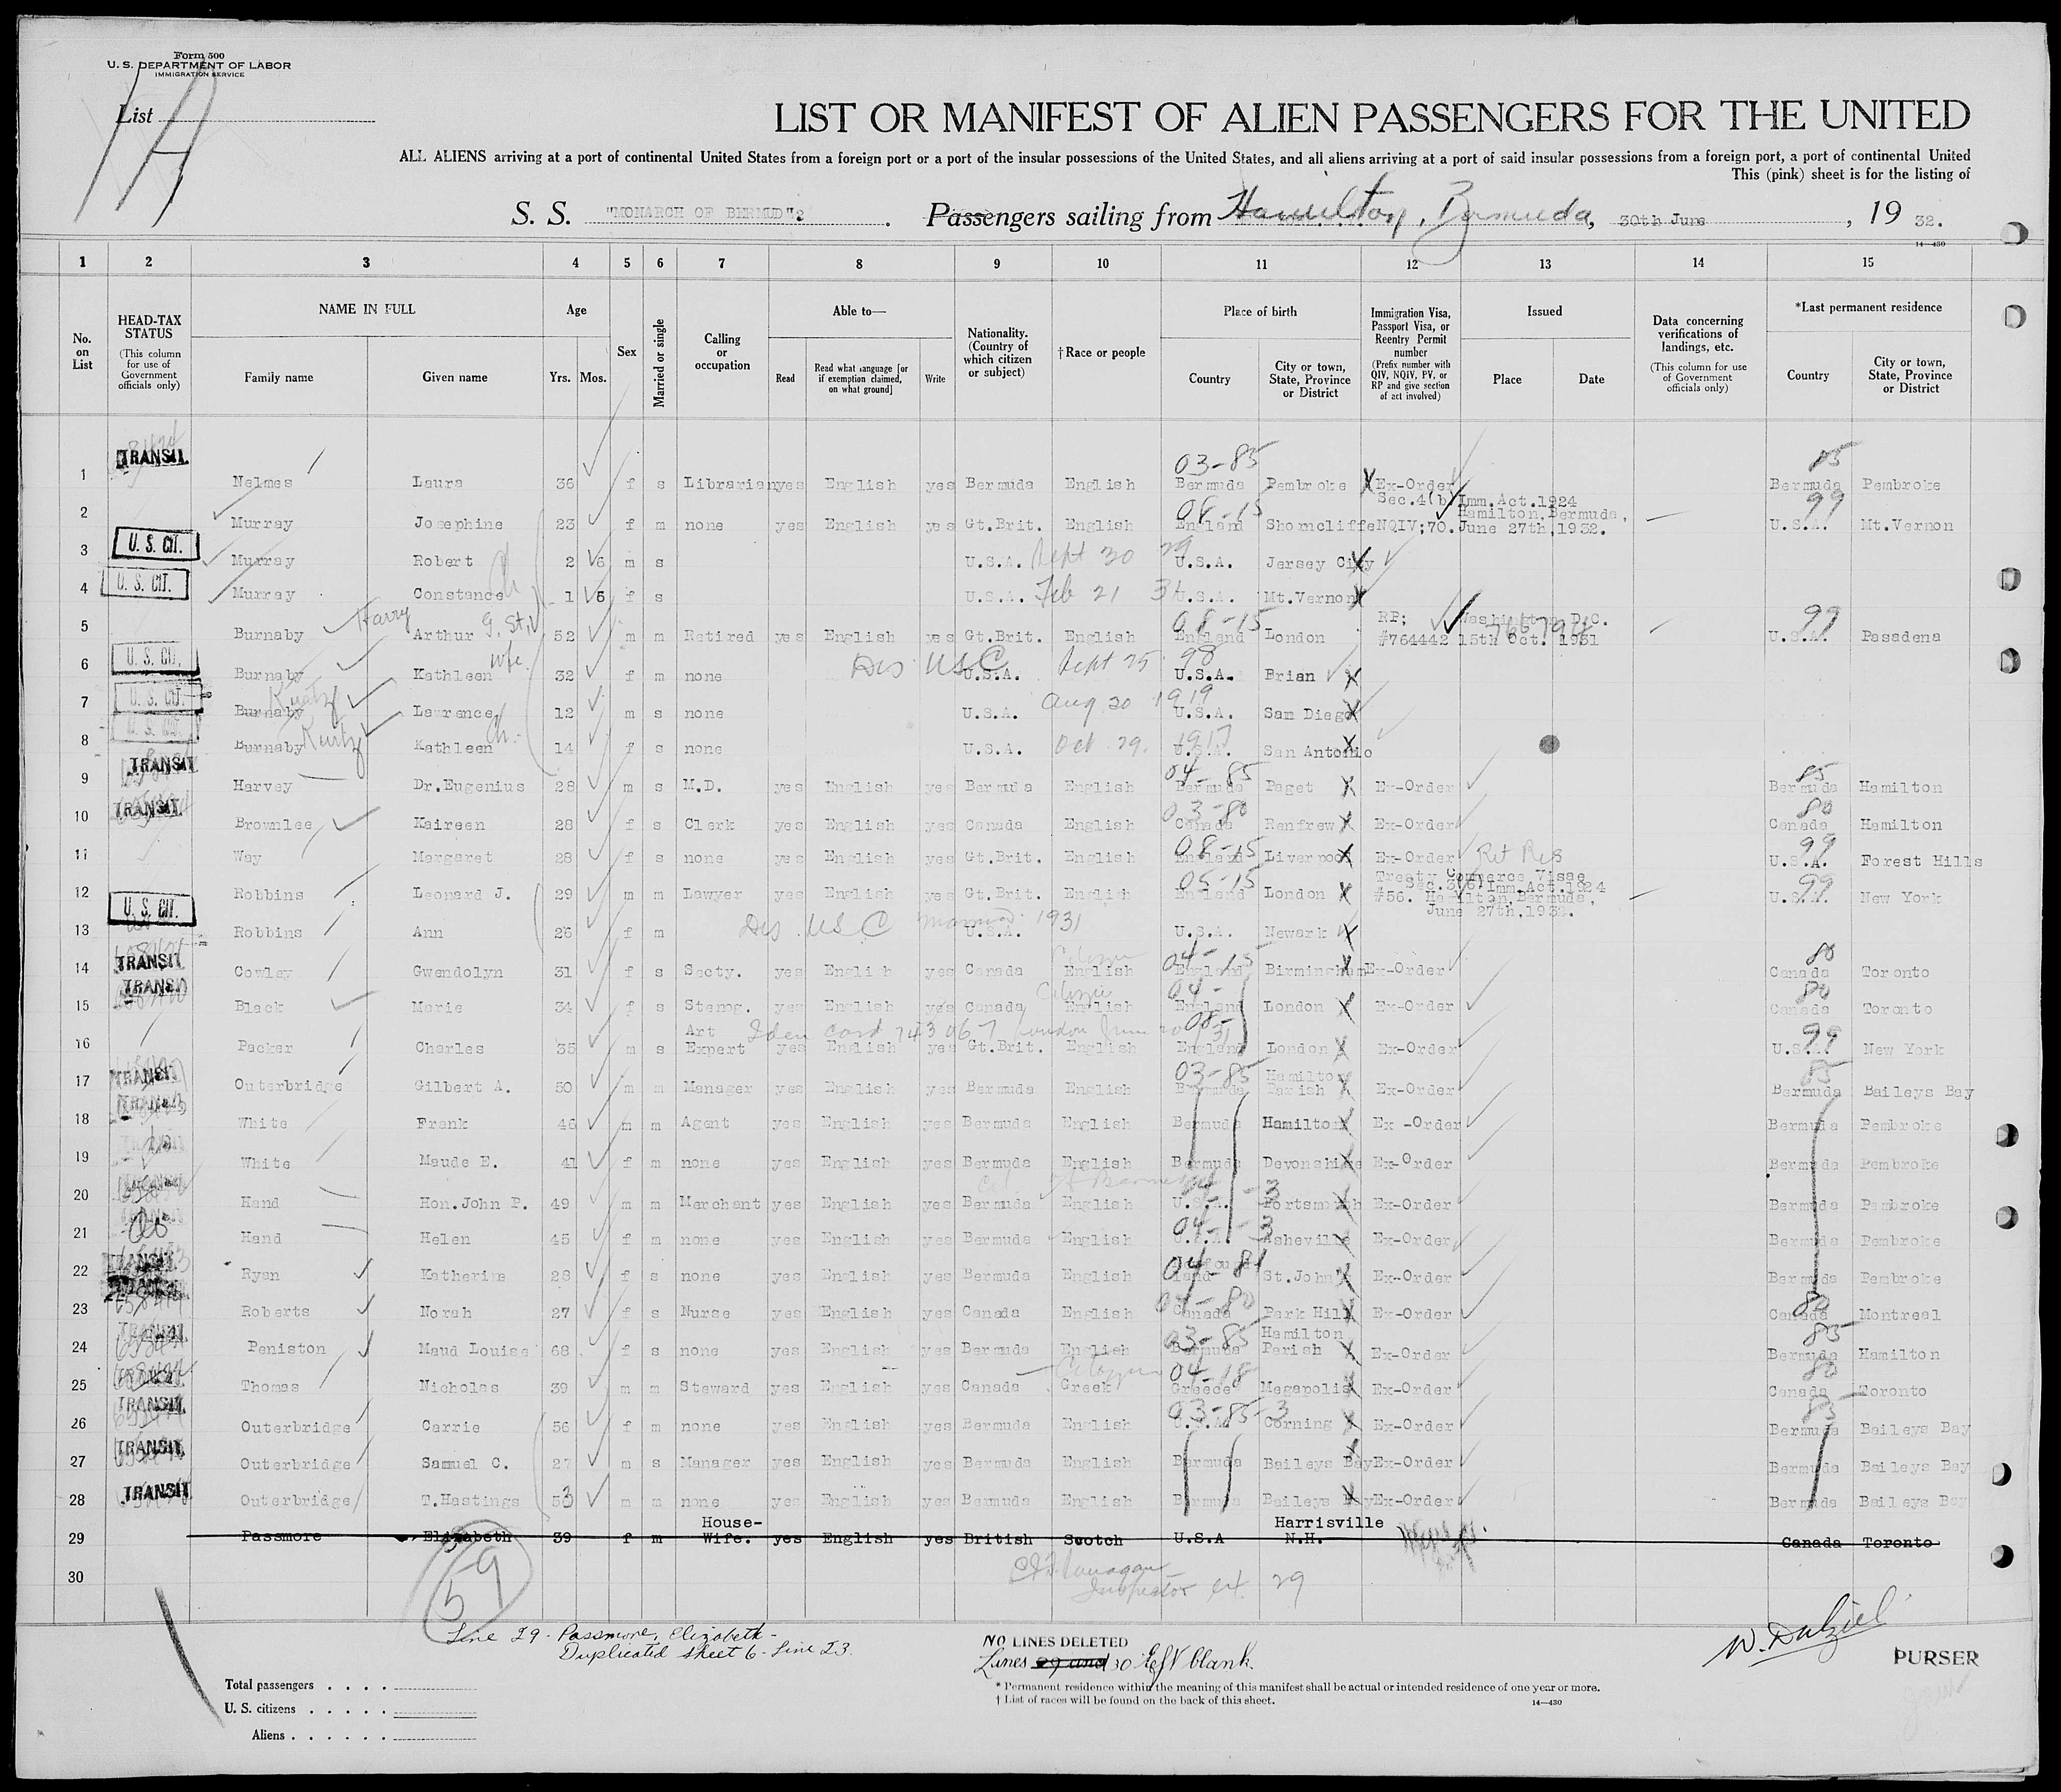 Form 500
U. S. DEPARTMENT OF LABOR
IMMIGRATION SERVICE
List
1A
LIST OR MANIFEST OF ALIEN PASSENGERS FOR THE UNITED
ALL ALIENS arriving at a port of continental United States from a foreign port or a port of the insular possessions of the United States, and all aliens arriving at a port of said insular possessions from a foreign port, a port of continental United
This (pink) sheet is for the listing of
S. S. "MONARCH OF BERMUD". Passengers sailing from Hamilton, Bermuda, 30th June, 1932.
14—430
1 2 3 4 5 6 7 8 9 10 11 12 13 14 15
No. on List
HEAD-TAX STATUS (This column for use of Government officials only)
NAME IN FULL Family name Given name
Age Yrs. Mos.
Sex
Married or single
Calling or occupation
Able to— Read Read what language [or if exemption claimed, on what ground] Write
Nationality. (Country of which citizen or subject)
†Race or people
Place of birth Country City or town, State, Province or District
Immigration Visa, Passport Visa, or Reentry Permit number (Prefix number with QIV, NQIV, PV, or RP and give section of act involved)
Issued Place Date
Data concerning verifications of landings, etc. (This column for use of Government officials only)
*Last permanent residence Country City or town, State, Province or District
TRANSIT 03-85
1 Nelmes Laura 36 f s Librarian yes English yes Bermuda English Bermuda Pembroke Ex-Order Bermuda Pembroke
Sec.4(b) Imm.Act.1924
08-15 Hamilton, Bermuda, 99
2 Murray Josephine 23 f m none yes English yes Gt.Brit. English England Shorncliffe NQIV;70. June 27th,1932. U.S.A. Mt.Vernon
U. S. CIT.
3 Murray Robert 2 6 m s U.S.A. Sept 30 29 U.S.A. Jersey City
U. S. CIT.
4 Murray Constance 1 5 f s U.S.A. Feb 21 31 U.S.A. Mt.Vernon
Harry G. St. 08-15 RP; Washington D.C. 99
5 Burnaby Arthur 52 m m Retired yes English yes Gt.Brit. English England London #764442 15th Oct. 1931 U.S.A. Pasadena
U. S. CIT. wfe. Des USC Sept 25 98
6 Burnaby Kathleen 32 f m none U.S.A. U.S.A. Brian
U. S. CIT. Kurtz Aug 20 1919
7 Burnaby Lawrence 12 m s none U.S.A. U.S.A. San Diego
U. S. CIT. Kurtz ch.
8 Burnaby Kathleen 14 f s none U.S.A. Oct. 29. 1917 U.S.A. San Antonio
TRANSIT 04-85 85
9 Harvey Dr.Eugenius 28 m s M.D. yes English yes Bermuda English Bermuda Paget Ex-Order Bermuda Hamilton
TRANSIT 03-80 80
10 Brownlee Kaireen 28 f s Clerk yes English yes Canada English Canada Renfrew Ex-Order Canada Hamilton
08-15 Ret Res 99
11 Way Margaret 28 f s none yes English yes Gt.Brit. English England Liverpool Ex-Order U.S.A. Forest Hills
05-15 Treaty Commerce Visae 99
Sec.3(6) Imm.Act.1924
12 Robbins Leonard J. 29 m m Lawyer yes English yes Gt.Brit. English England London #56. Hamilton, Bermuda, U.S.A. New York
June 27th,1932.
U. S. CIT. Des USC married 1931
13 Robbins Ann 26 f m U.S.A. U.S.A. Newark
TRANSIT Citizen 04-15 80
14 Cowley Gwendolyn 31 f s Secty. yes English yes Canada English England Birmingham Ex-Order Canada Toronto
TRANSIT Citizen 04- 80
15 Black Marie 34 f s Stenog. yes English yes Canada English England London Ex-Order Canada Toronto
Iden card 743067 London June 20 31 08- 99
16 Packer Charles 35 m s Art Expert yes English yes Gt.Brit. English England London Ex-Order U.S.A. New York
TRANSIT 03-85 Hamilton 85
17 Outerbridge Gilbert A. 50 m m Manager yes English yes Bermuda English Bermuda Parish Ex-Order Bermuda Baileys Bay
TRANSIT
18 White Frank 46 m m Agent yes English yes Bermuda English Bermuda Hamilton Ex -Order Bermuda Pembroke
19 White Maude E. 41 f m none yes English yes Bermuda English Bermuda Devonshire Ex-Order Bermuda Pembroke
20 Hand Hon.John P. 49 m m Merchant yes English yes Bermuda English U.S.A. Portsmouth Ex-Order Bermuda Pembroke
04- -3
21 Hand Helen 45 f m none yes English yes Bermuda English U.S.A. Asheville Ex-Order Bermuda Pembroke
TRANSIT 04-81
22 Ryan Katherine 28 f s none yes English yes Bermuda English St.John's Ex-Order Bermuda Pembroke
04-80 80
23 Roberts Norah 27 f s Nurse yes English yes Canada English Canada Park Hill Ex-Order Canada Montreal
TRANSIT 03-85 Hamilton 85
24 Peniston Maud Louise 68 f s none yes English yes Bermuda English Bermuda Parish Ex-Order Bermuda Hamilton
Citizen 04-18 80
25 Thomas Nicholas 39 m m Steward yes English yes Canada Greek Greece Megapolis Ex-Order Canada Toronto
TRANSIT 03-85-3 85
26 Outerbridge Carrie 56 f m none yes English yes Bermuda English U.S.A. Corning Ex-Order Bermuda Baileys Bay
TRANSIT
27 Outerbridge Samuel C. 27 m s Manager yes English yes Bermuda English Bermuda Baileys Bay Ex-Order Bermuda Baileys Bay
TRANSIT
28 Outerbridge T.Hastings 53 m m none yes English yes Bermuda English Bermuda Baileys Bay Ex-Order Bermuda Baileys Bay
House- Harrisville
29 Passmore Elizabeth 39 f m Wife. yes English yes British Scotch U.S.A N.H. Canada Toronto
30
59
Inspector 29
Line 29 - Passmore, Elizabeth -
Duplicated sheet 6 - Line 23.
NO LINES DELETED
Lines 29 and 30 left blank.
W. Dalziel
PURSER
Total passengers . . . .
U. S. citizens . . . . .
Aliens . . . . . .
* Permanent residence within the meaning of this manifest shall be actual or intended residence of one year or more.
† List of races will be found on the back of this sheet.
14—430